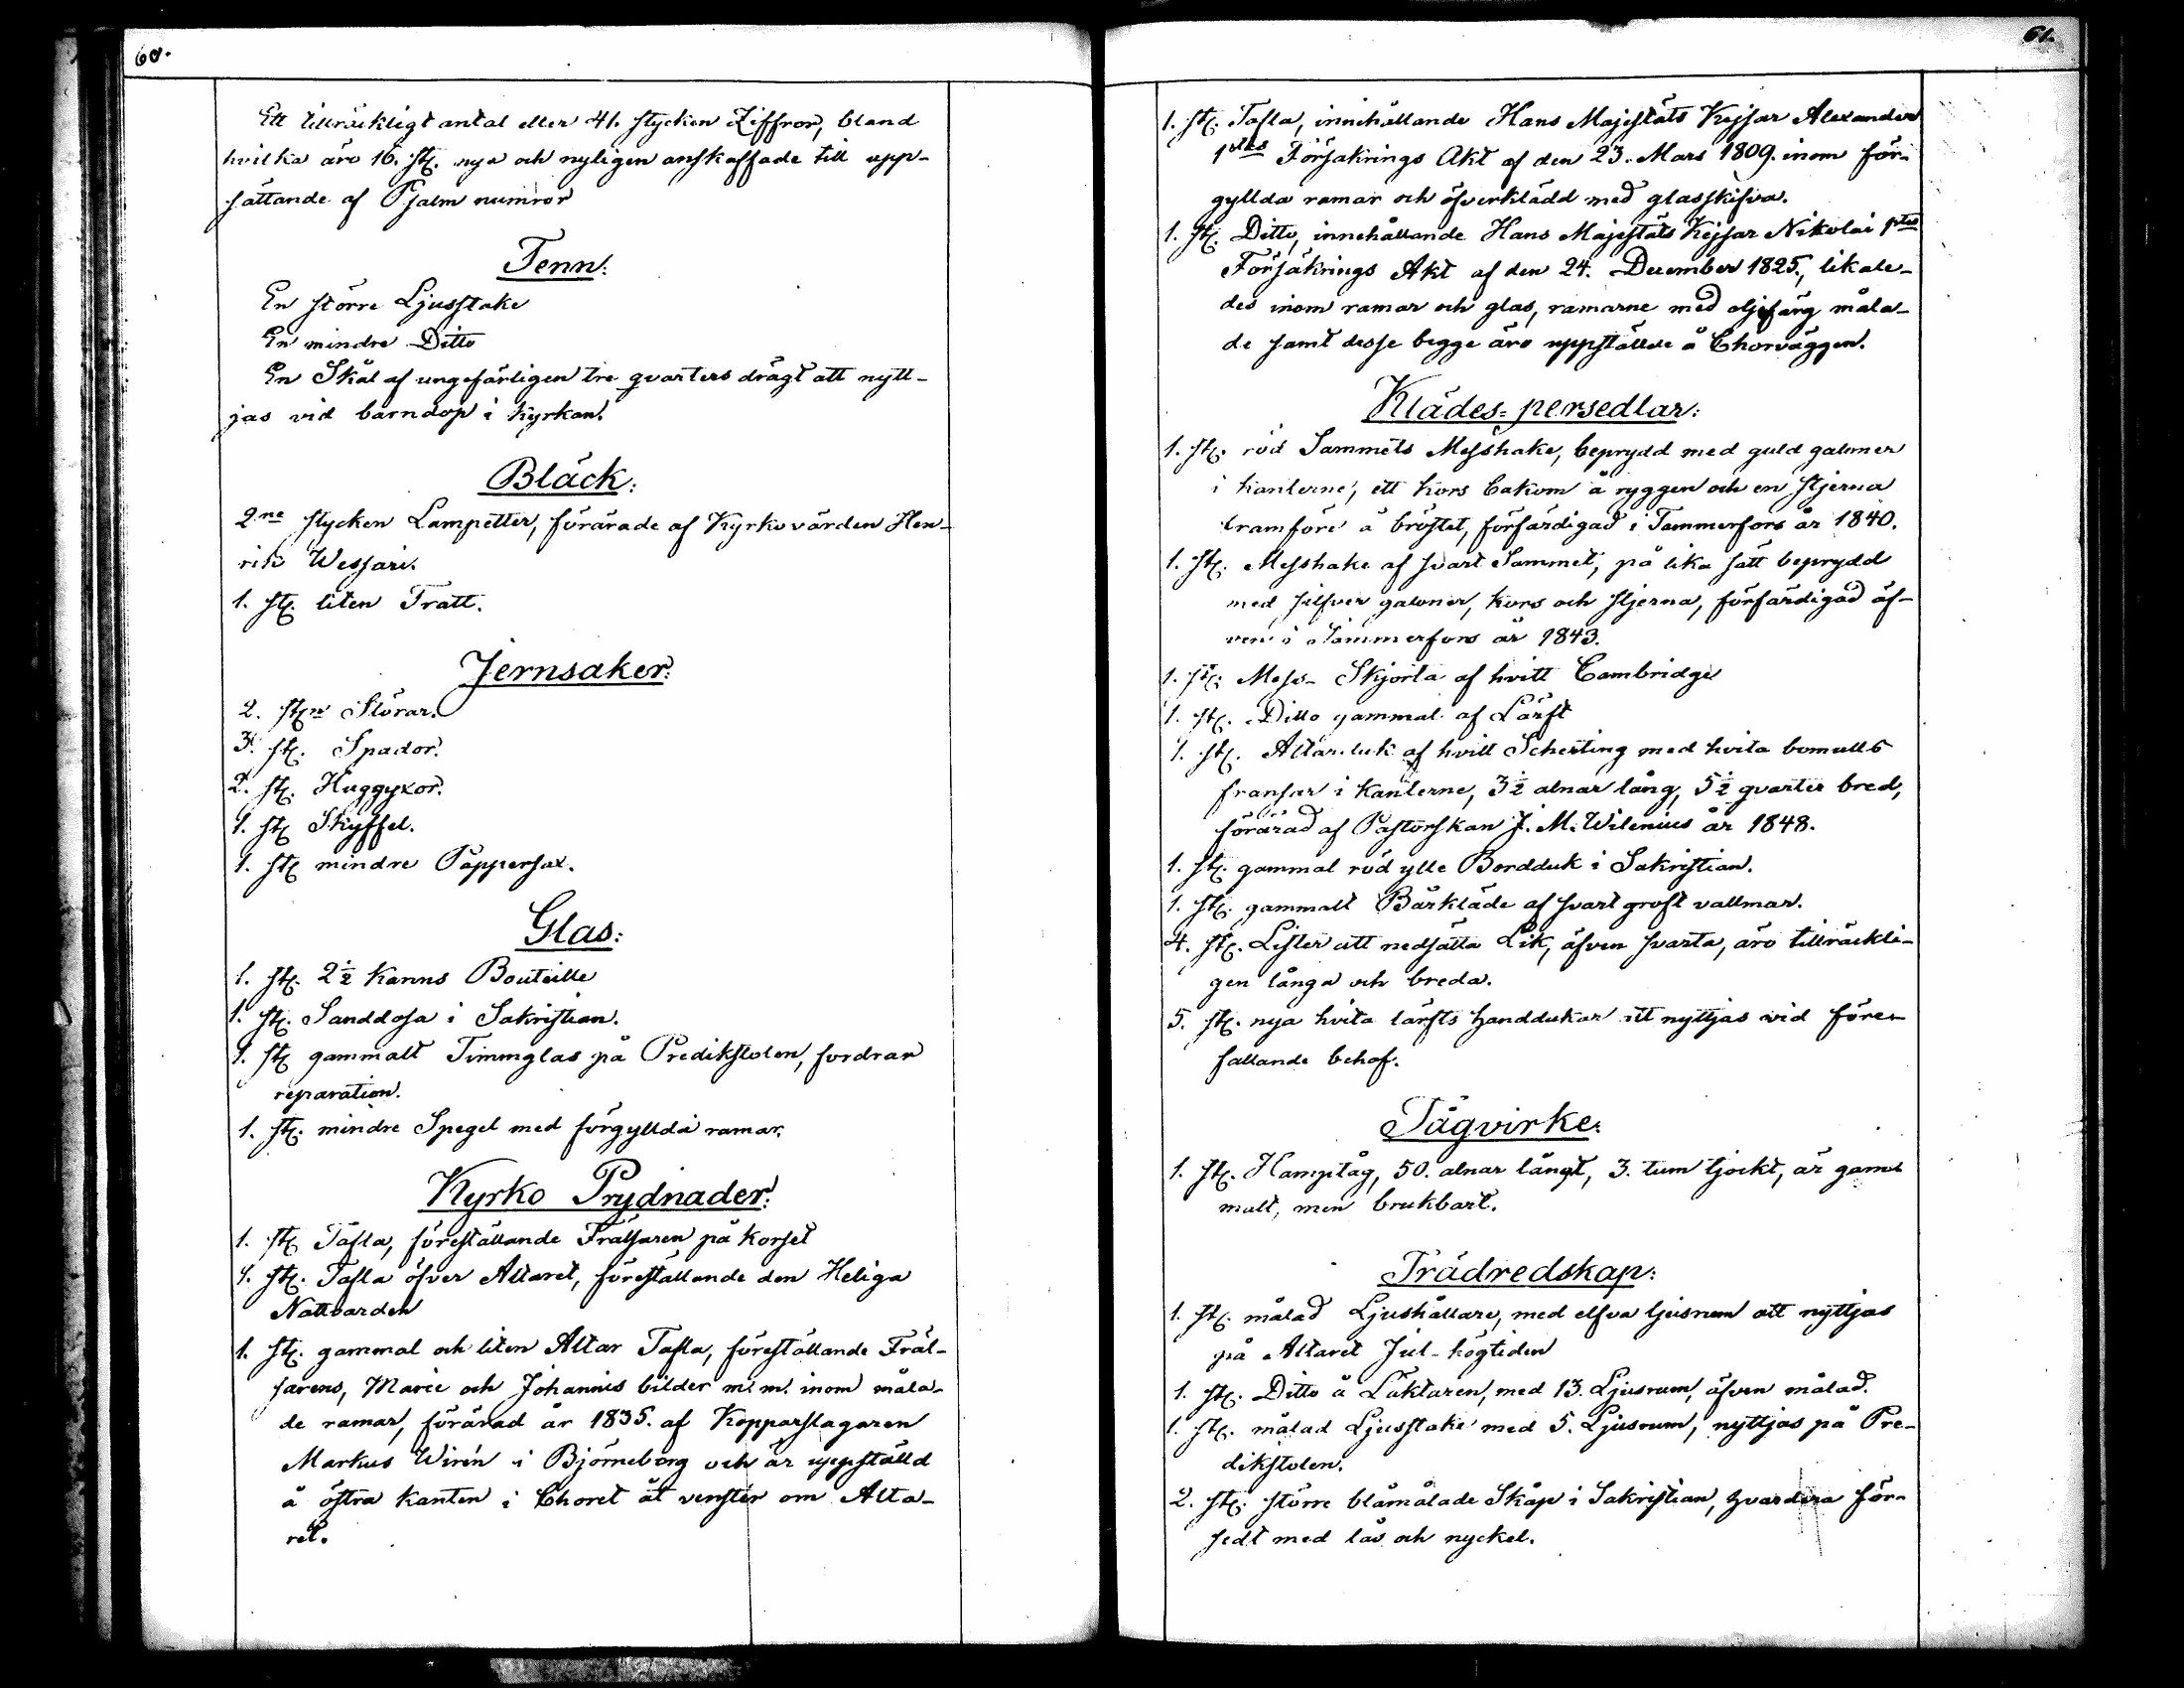 60.
Ett tillräckligt antal eller 41. stycken Ziffror, bland
hvilka äro 16. st. nya och nyligen anskaffade till upp-
sättande af Psalm numror
Tenn:
En större Ljusstake
En mindre Ditto
En Skål af ungefärligen tre qvarters drägt att nytt-
jas vid barndop i Kyrkan.
Bläck:
2ne stycken Lampetter, förärade af Kyrkovärden Hen-
rik Wessari.
1. st. liten Tratt.
Jernsaker:
2. stn Störar.
3. st. Spador.
2. st. Huggyxor.
1. st Skyffel.
1. st mindre Pappersax.
Glas:
1. st. 2½ Kanns Bouteille
1. st. Sanddosa i Sakristian.
1. st gammalt Timmglas på Predikstolen, fordrar
reparation.
1. st. mindre Spegel med förgyllda ramar.
Kyrko Prydnader:
1. st Tafla, föreställande Frälsaren på korset
1. st. Tafla öfver Altaret, föreställande den Heliga
Nattvarden
1. st. gammal och liten Altar Tafla, föreställande Fräl-
sarens, Marie och Johannis bilder m. m. inom måla-
de ramar, förärad år 1835. af Kopparslagaren
Markus Wirén i Björneborg och är uppställd
å östra kanten i Choret åt venster om Alta-
ret.
61.
1. st. Tafla, innehållande Hans Majestäts Kejsar Alexander
1stes Försäkrings Akt af den 23. Mars 1809. inom för-
gyllda ramar och öfverklädd med glasskifva.
1. st. Ditto, innehållande Hans Majestäts Kejsar Nikolai 1stes
Försäkrings Akt af den 24. December 1825., likale-
des inom ramar och glas, ramarne med oljefärg måla-
de samt desse begge äro uppställde å Chorväggen.
Klädes-persedlar:
1. st. röd Sammets Messhake, beprydd med guld galoner
i kanterne, ett kors bakom å ryggen och en stjerna
framföre å bröstet, förfärdigad i Tammerfors år 1840.
1. st. Messhake af svart Sammet, på lika sätt beprydd
med silfver galoner, kors och stjerna, förfärdigad äf-
ven i Tammerfors år 1843.
1. st. Mess-Skjorta af hvitt Cambridge
1. st. Ditto gammal af Lärft
1. st. Altarduk af hvitt Scherting med hvita bomulls
fransar i kanterne, 3½ alnar lång, 5½ qvarter bred,
förärad af Pastorskan J. M. Wilenius år 1848.
1. st. gammal röd ylle Bordduk i Sakristian.
1. st. gammalt Bårkläde af svart groft vallmar.
4. st. Lister att nedsätta Lik, äfven svarta, äro tillräckli-
gen långa och breda.
5. st. nya hvita lärfts handdukar att nyttjas vid före-
fallande behof.
Tågvirke:
1. st. Hamptåg, 50. alnar långt, 3. tum tjockt, är gam-
malt, men brukbart.
Trädredskap:
1. st. målad Ljushållare, med elfva ljusrum att nyttjas
på Altaret Jul-högtiden
1. st. Ditto å Läktaren, med 13. Ljusrum, äfven målad.
1. st. målad Ljusstake med 5. Ljusrum, nyttjas på Pre-
dikstolen.
2. st. större blåmålade Skåp i Sakristian, hvardera för-
sedt med lås och nyckel.